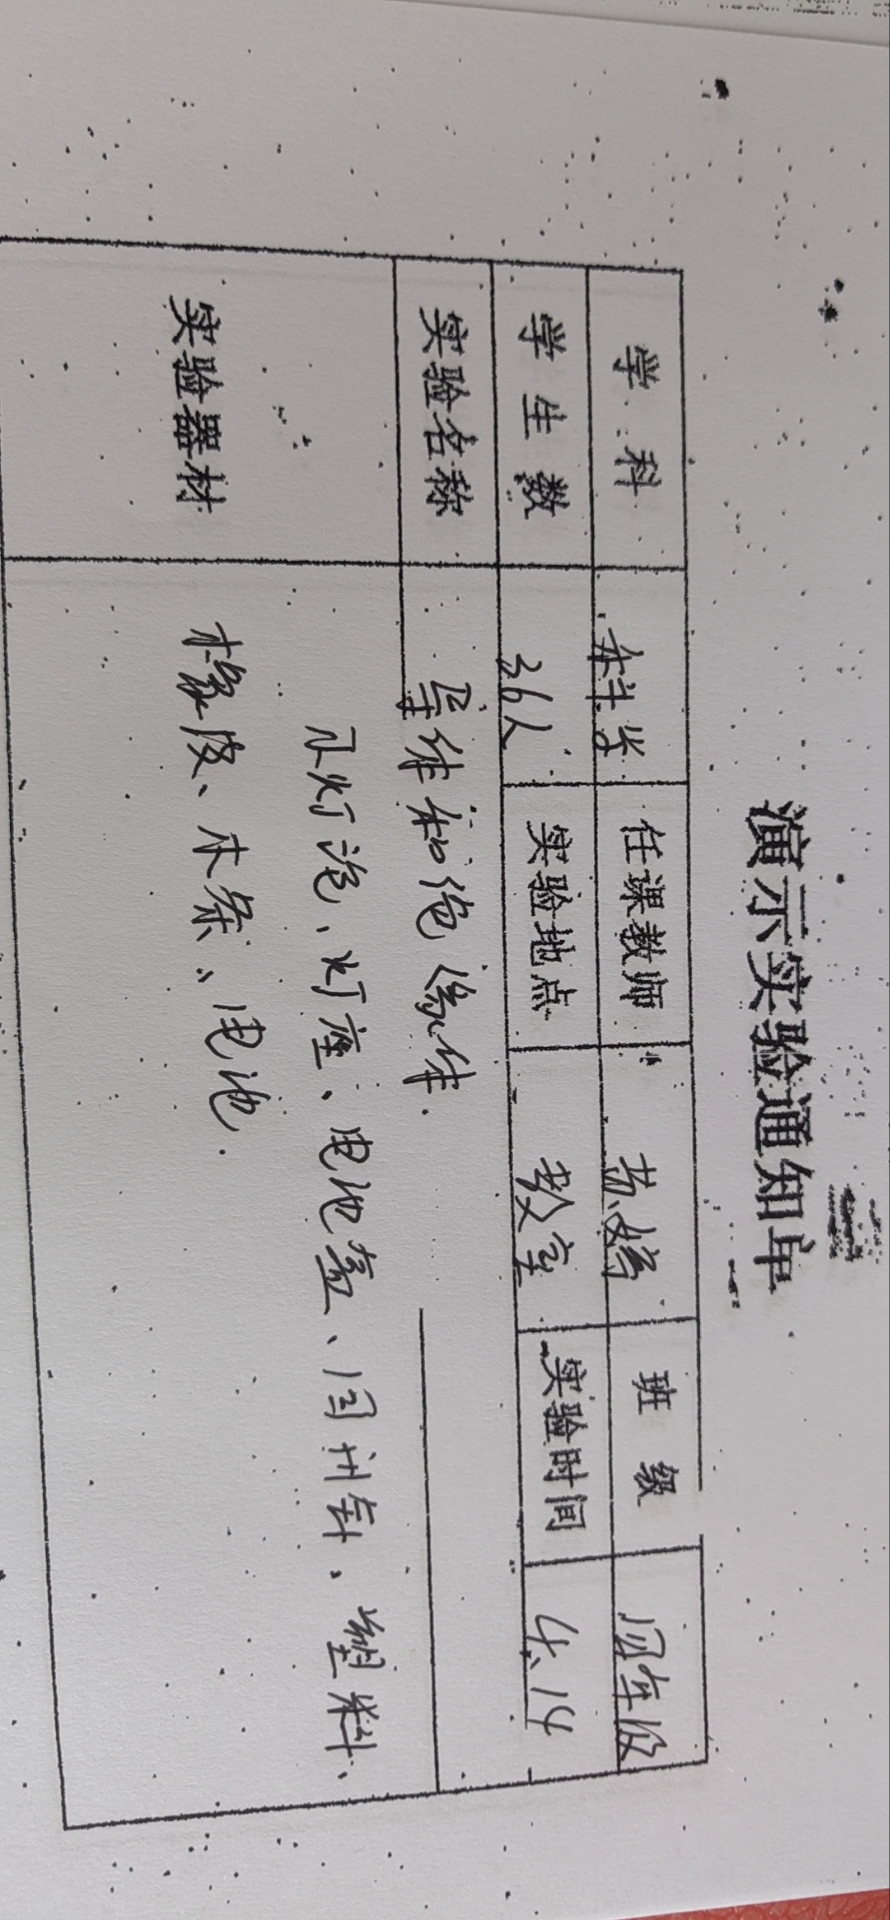 演示实验通知单
学 科 科学 任课教师 苏婷 班 级 四年级
学 生 数 36人 实验地点 教室 实验时间 4.14
实验名称 导体和绝缘体.
小灯泡、灯座、电池盒、回形针、塑料、
实验器材
橡皮、木条、电池.